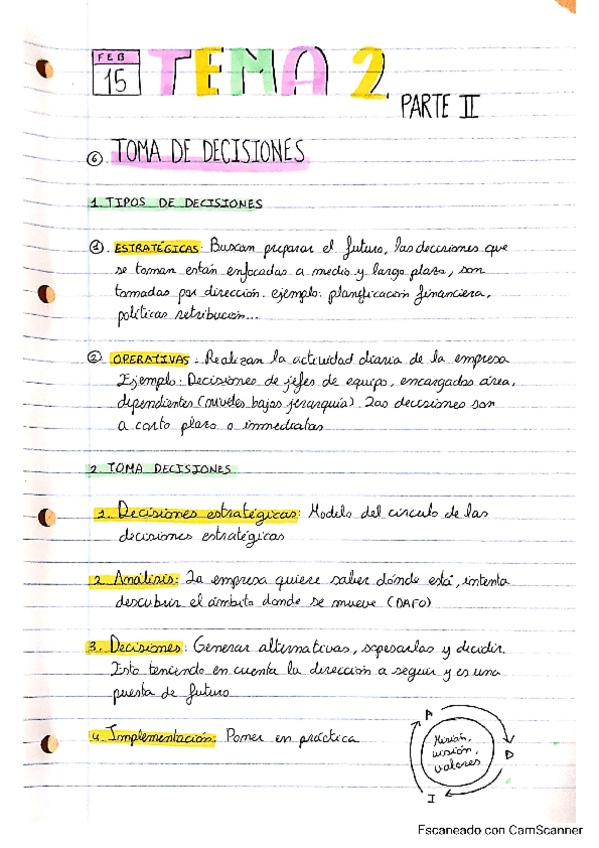 FEB
15
TEMA 2
PARTE II
⑥ TOMA DE DECISIONES
1. TIPOS DE DECISIONES
①. ESTRATÉGICAS: Buscan preparar el futuro, las decisiones que
se toman están enfocadas a medio y largo plazo, son
tomadas por dirección. ejemplo: planificación financiera,
políticas retribución...
② OPERATIVAS: Realizan la actividad diaria de la empresa
Ejemplo: Decisiones de jefes de equipo, encargados área,
dependientes (niveles bajos jerarquía). Las decisiones son
a corto plazo o inmediatas
2. TOMA DECISIONES
1. Decisiones estratégicas: Modelo del círculo de las
decisiones estratégicas
2. Análisis: La empresa quiere saber dónde está, intenta
descubrir el ámbito donde se mueve (DAFO)
3. Decisiones: Generar alternativas, sopesarlas y decidir.
Esto teniendo en cuenta la dirección a seguir y es una
puesta de futuro
4. Implementación: Poner en práctica
A
Misión,
visión,
valores
D
I
Escaneado con CamScanner